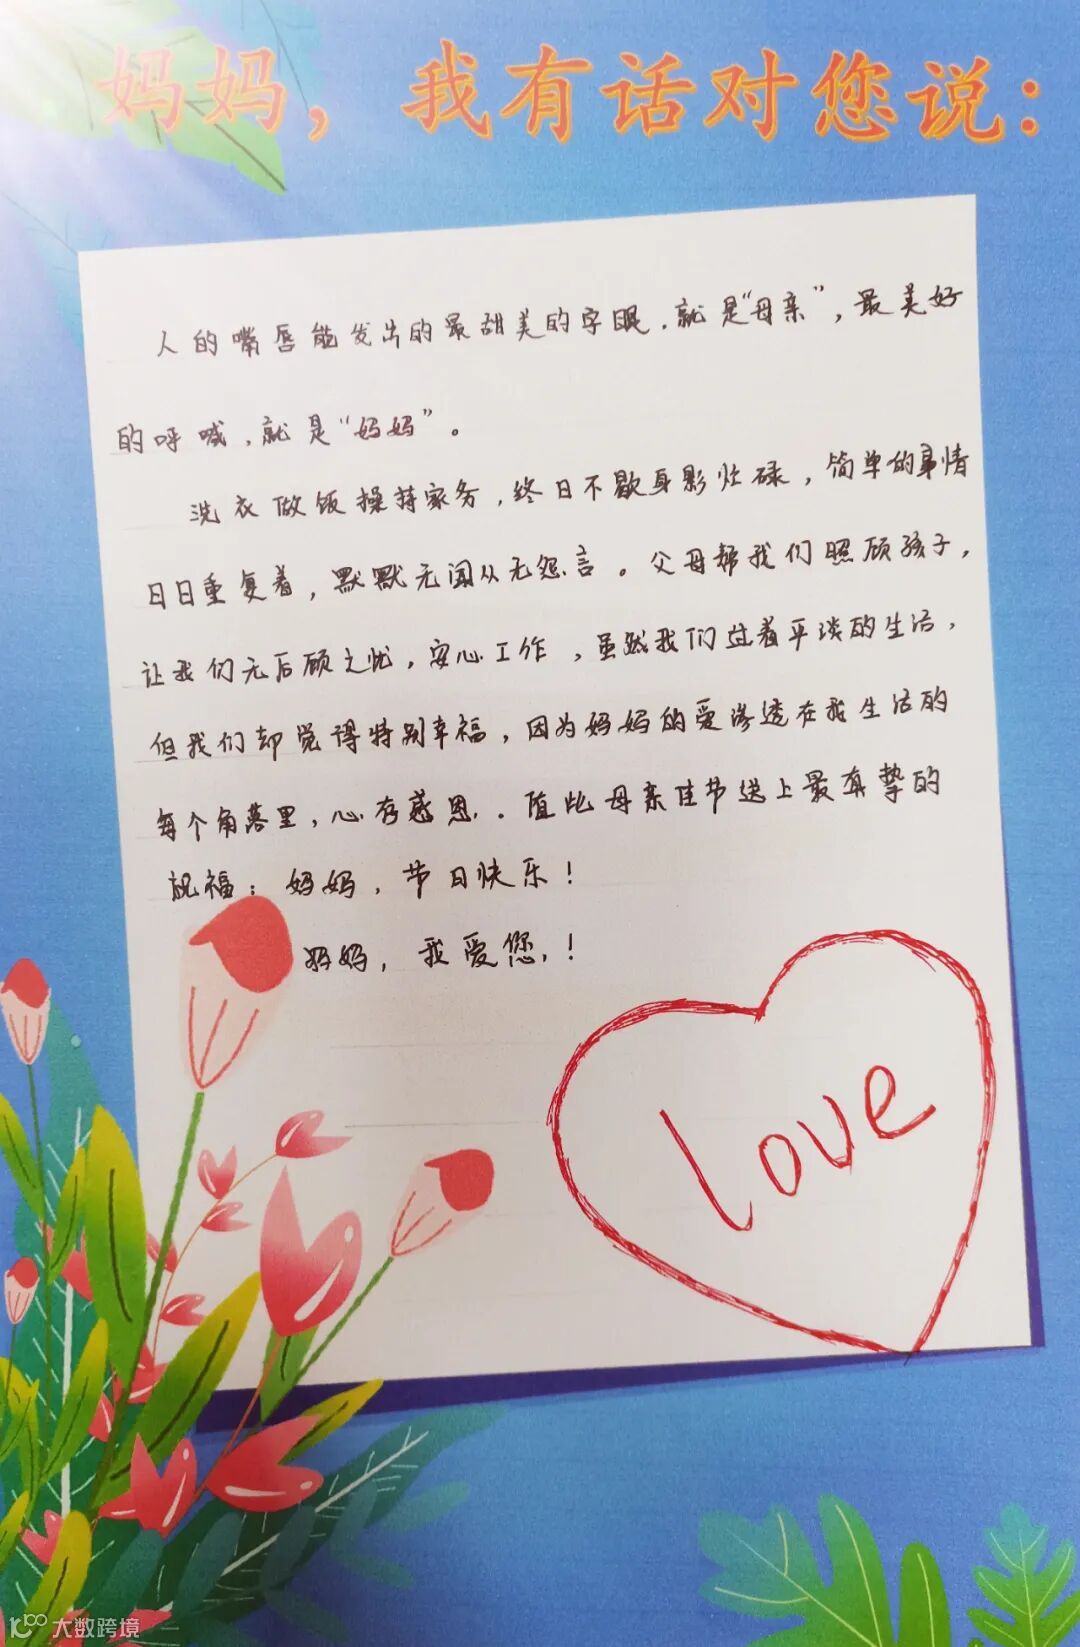 妈妈，我有话对您说：
人的嘴唇能发出的最甜美的字眼，就是“母亲”，最美好
的呼喊，就是“妈妈”。
洗衣做饭操持家务，终日不歇身影忙碌，简单的事情
日日重复着，默默无闻从无怨言。父母帮我们照顾孩子，
让我们无后顾之忧，安心工作，虽然我们过着平淡的生活，
但我们却觉得特别幸福，因为妈妈的爱渗透在我生活的
每个角落里，心存感恩。值此母亲佳节送上最真挚的
祝福：妈妈，节日快乐！
妈妈，我爱您！
Love
大数跨境